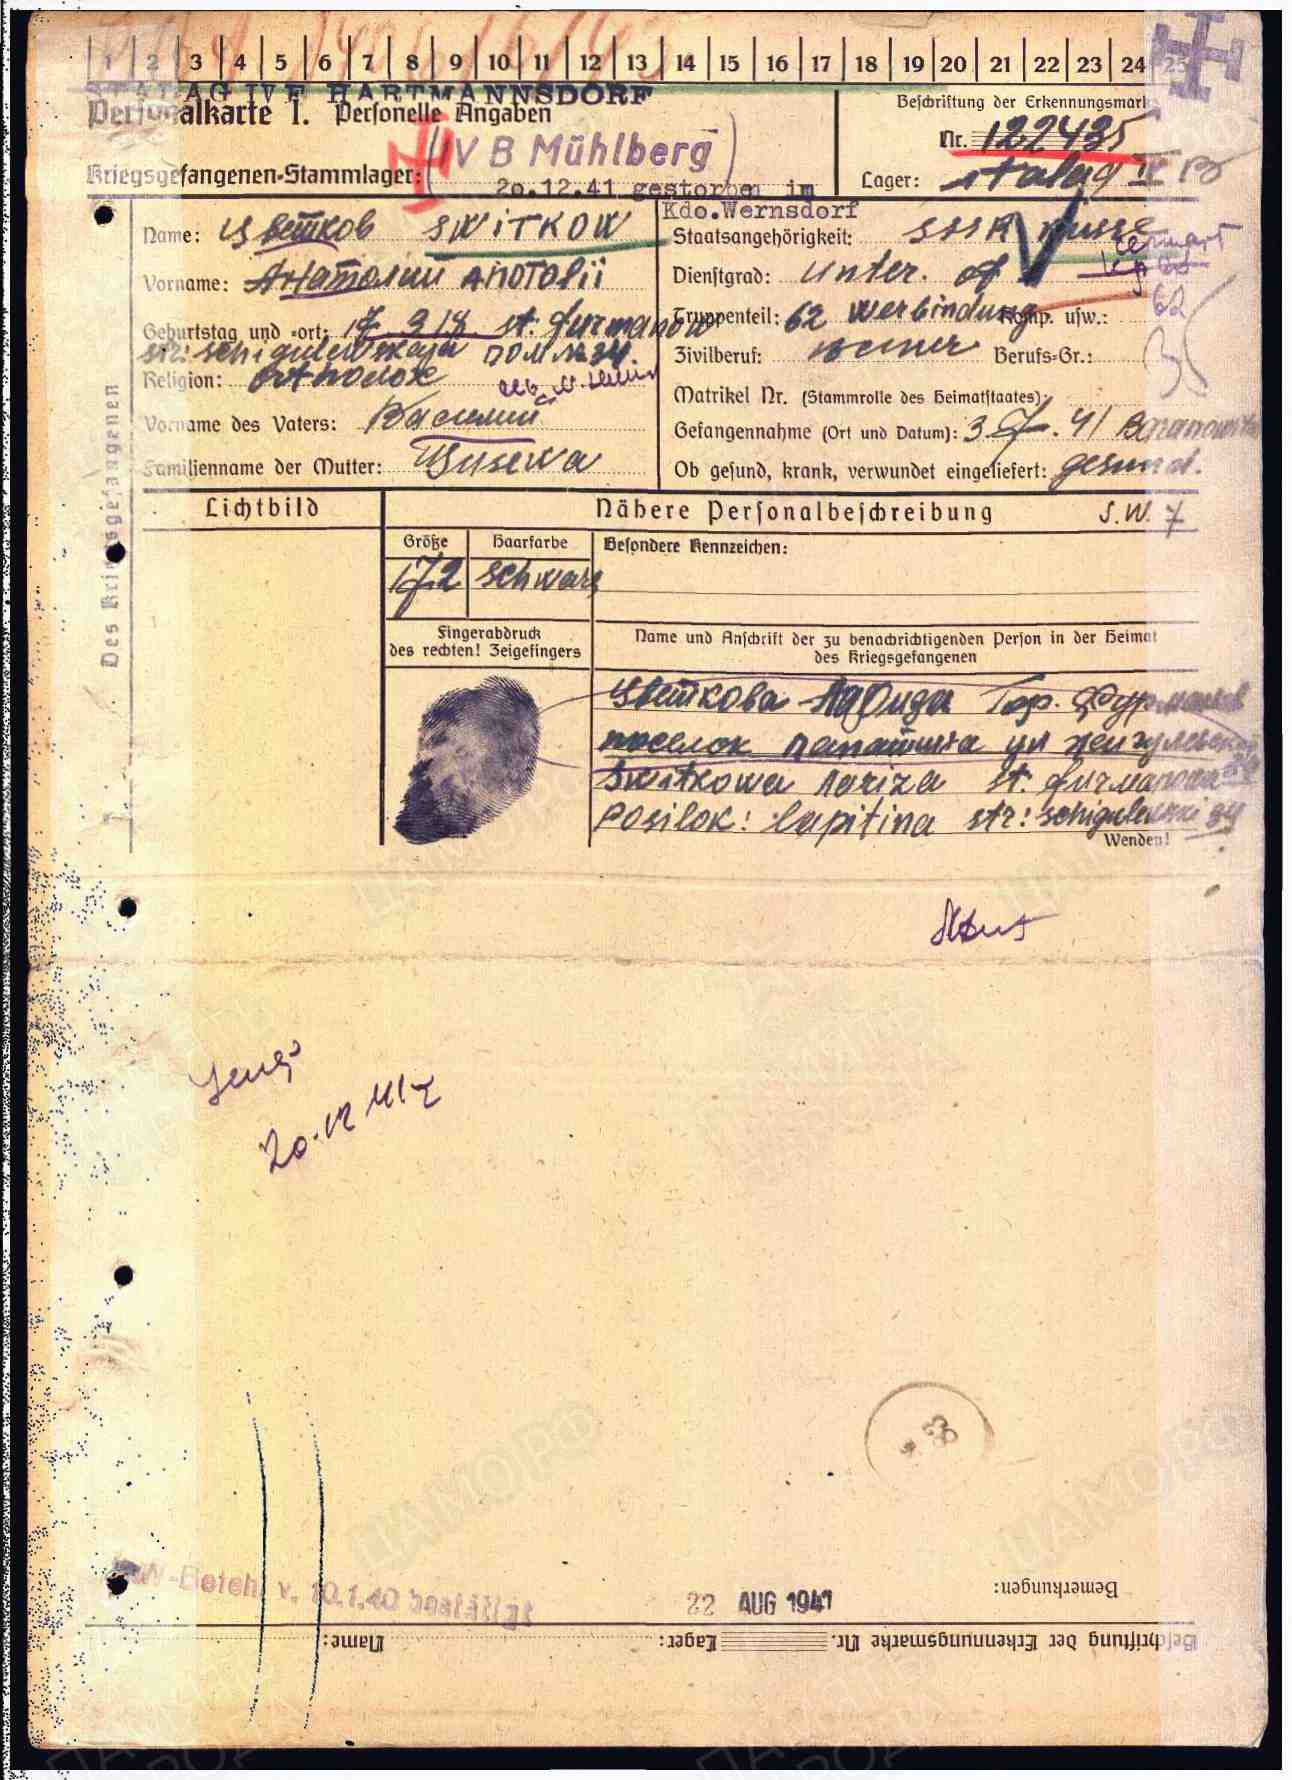 1 2 3 4 5 6 7 8 9 10 11 12 13 14 15 16 17 18 19 20 21 22 23 24 25
STALAG IVF HARTMANNSDORF
Personalkarte I. Personelle Angaben
Beschriftung der Erkennungsmarke
Nr. 122435
IV B Mühlberg
Kriegsgefangenen-Stammlager:
Lager: Stalag IV B
20.12.41 gestorben im
Kdo.Wernsdorf
Name: Цветков SWITKOW
Staatsangehörigkeit: SSSR Russe
Vorname: Анатолий ANOTOLII
Dienstgrad: Unter.
Geburtstag und -ort: 17 9 18 st. furmanow
Truppenteil: 62 Werbindung Komp. usw.:
62
str: schigulewskaja DOM № 34.
Zivilberuf: Berufs-Gr.:
Religion:
Matrikel Nr. (Stammrolle des Heimatstaates):
Vorname des Vaters: Василий
Gefangennahme (Ort und Datum): 3 7. 41
Familienname der Mutter: Gusewa
Ob gesund, krank, verwundet eingeliefert: gesund.
Des Kriegsgefangenen
Lichtbild
Nähere Personalbeschreibung S.W. 7
Größe Haarfarbe Besondere Kennzeichen:
172 schwarz
Fingerabdruck
des rechten! Zeigefingers
Name und Anschrift der zu benachrichtigenden Person in der Heimat
des Kriegsgefangenen
Цветкова Гор. Фурманов
поселок ул
Switkowa Lariza st. furmanow
Posilok: Lapitina str: schigulewski 34
Wenden!
20.12 41
22 AUG 1941
Bemerkungen:
v. 10.1.40 bestätigt
Beschriftung der Erkennungsmarke Nr. Lager: Name: